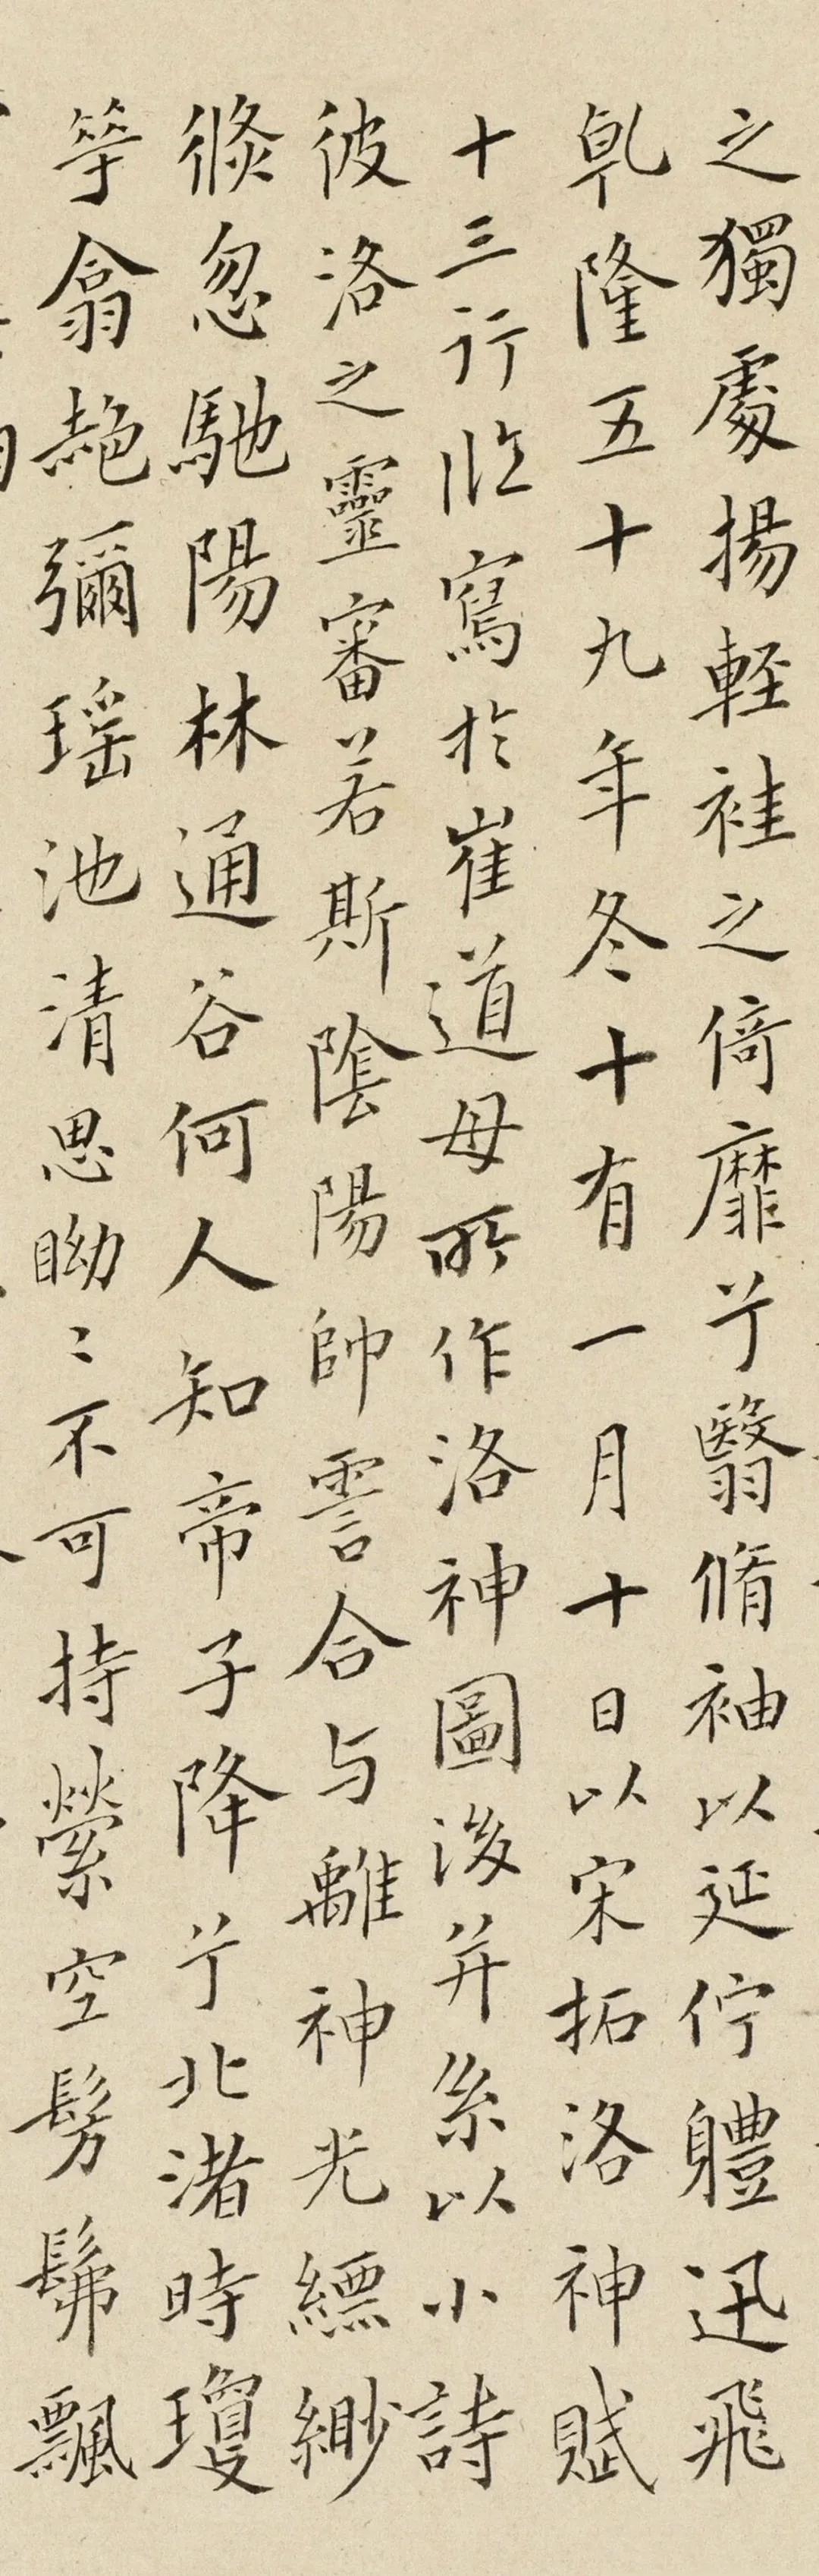 之獨處揚輕袿之倚靡兮翳脩袖以延佇體迅飛
乹隆五十九年冬十有一月十日以宋拓洛神賦
十三行臨寫於崔道母所作洛神圖後并系以小詩
彼洛之靈審若斯陰陽帥䨱合与離神光縹緲
倏忽馳陽林通谷何人知帝子降兮北渚時瓊
華翕赩彌瑤池清思眑〻不可持縈空髣髴飄